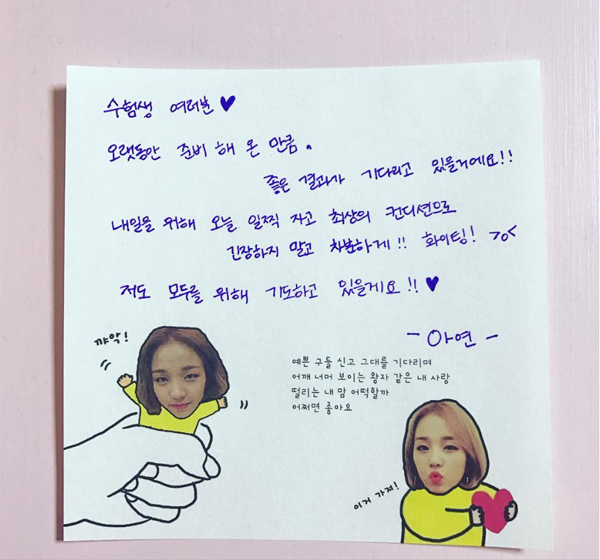 수험생 여러분 ♥
오랫동안 준비 해 온 만큼.
좋은 결과가 기다리고 있을거에요!!
내일을 위해 오늘 일찍 자고 최상의 컨디션으로
긴장하지 말고 차분하게!! 화이팅! >o<
저도 모두를 위해 기도하고 있을게요!! ♥
- 아연 -
꺄악!
예쁜 구둘 신고 그대를 기다리며
어깨 너머 보이는 왕자 같은 내 사랑
떨리는 내 맘 어떡할까
어쩌면 좋아요
이거 가져!